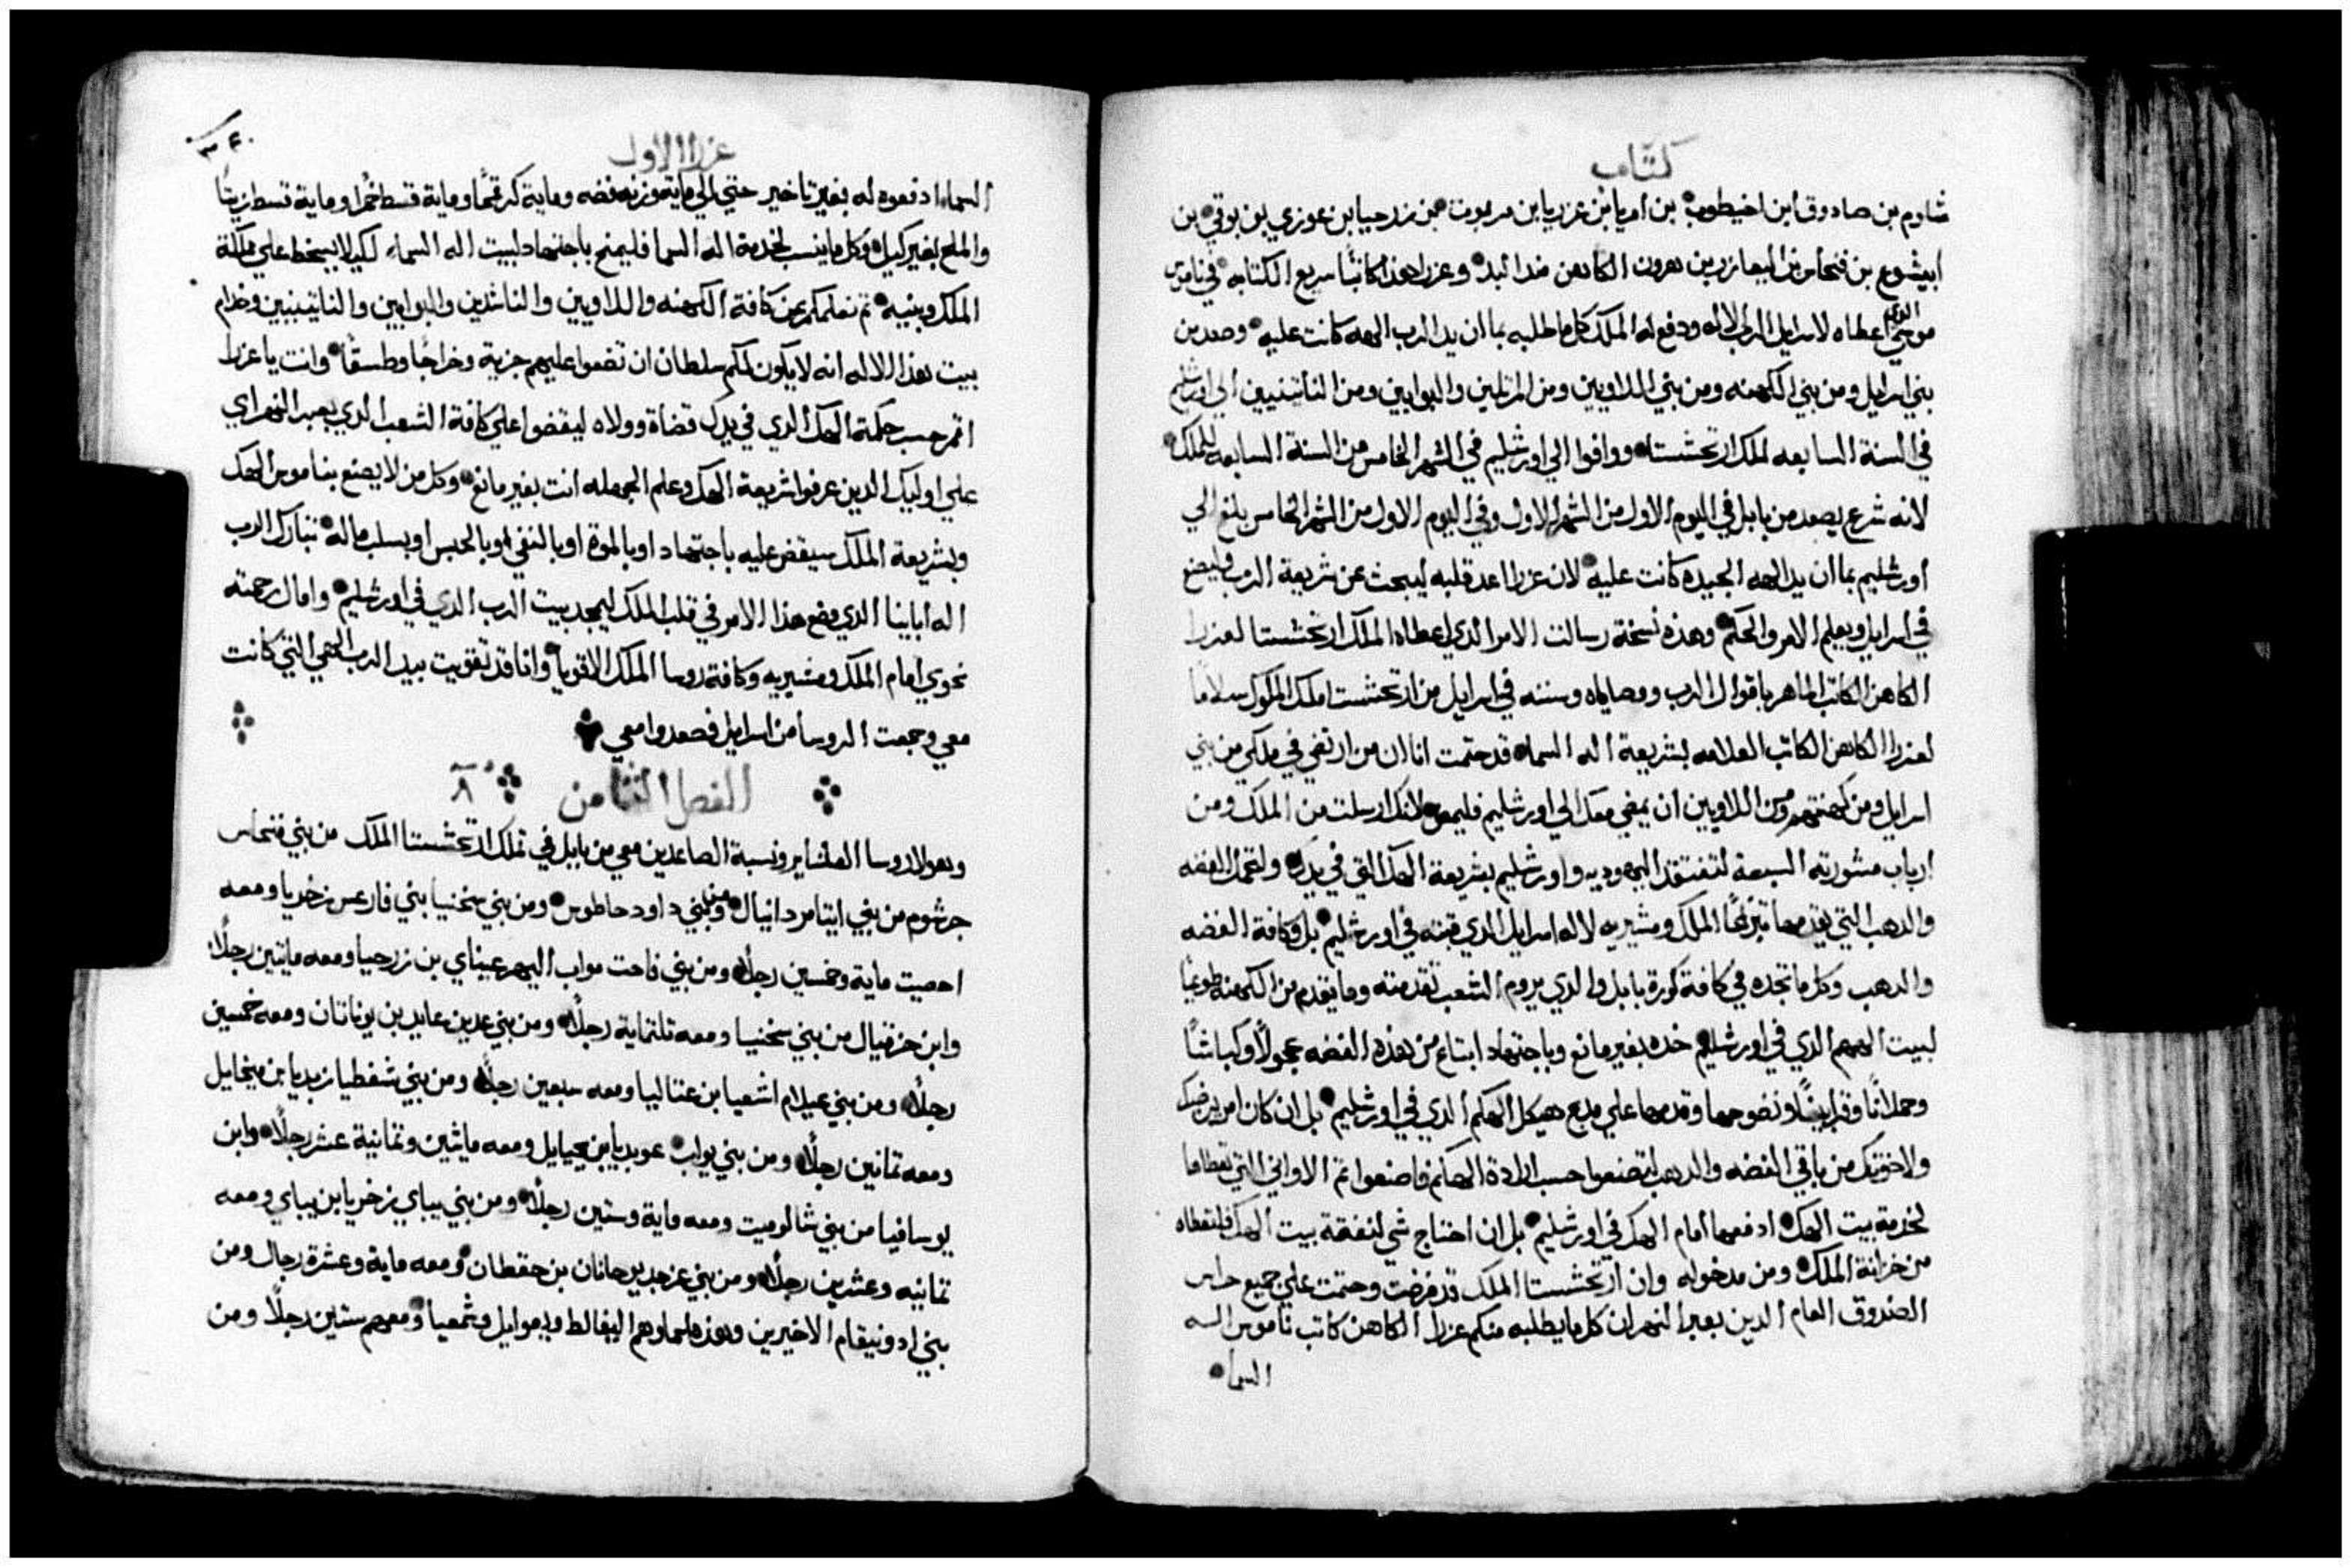 كتاب
شاوم بن صادوق ابن اخيطوب بن امريا بن عزريا بن مريوت بن زرحيا بن عوزي بن بوقي بن
ابيشوع بن فنحاس بن اليعازر بن هرون الكاهن مند البد وعزرا هذا كاتبًا سريع الكتابه في ناموس
موسي الدي اعطاه لاسرايل الرب الاله ودفع له الملك كل ما طلبه بما ان يد الرب الهه كانت عليه وصعد من
بني اسرايل ومن بني الكهنه ومن بني اللاويين ومن المرتلين والبوابين ومن الناتينيين الي اورشليم
في السنة السابعه لملك ارتحشستا ووافوا الي اورشليم في الشهر الخامس من السنة السابعه للملك
لانه شرع يصعد من بابل في اليوم الاول من الشهر الاول وفي اليوم الاول من الشهر الخامس بلغ الي
اورشليم بما ان يد الهه الجيده كانت عليه لان عزرا اعد قلبه ليبحث عن شريعة الرب فليصنع
في اسرايل ويعلم الامر والحكم وهذه نسخة رسالت الامر الدي اعطاه الملك ارتحشستا لعزرا
الكاهن الكاتب الماهر باقوال الرب ووصاياه وسننه في اسرايل من ارتحشستا ملك الملوك سلامًا
لعزرا الكاهن الكاتب العلامه بشريعة اله السماء قد حتمت انا ان من ارتضي في ملكي من بني
اسرايل ومن كهنتهم ومن اللاويين ان يمضي معك الي اورشليم فليمض لانك ارسلت من الملك ومن
ارباب مشورته السبعة لتفتقد اليهوديه واورشليم بشريعة الهك التي في يدك ولتحمل الفضه
والدهب التي يقدمها تبرعًا الملك ومشيريه لاله اسرايل الدي قبته في اورشليم بل وكافة الفضه
والدهب وكل ما تجده في كافة كورة بابل والدي يروم الشعب تقدمته وما يتقدم من الكهنه طوعيًا
لبيت الههم الدي في اورشليم خده بغير مانع وباجتهاد ابتاع من هذه الفضه عجولًا وكباشًا
وحملانًا وقرابينًا ونضوحها وقدمها علي مدبح هيكل الهكم الدي في اورشليم بل ان كان امر يرضيك
ولاخوتك من باقي الفضه والدهب لتصنعوا حسب ارادة الهكم فاصنعوا تم الاواني التي تعطاها
لخدمة بيت الهك ادفعها امام الهك في اورشليم بل ان احتاج شي لنفقة بيت الهك فلتعطاه
من خزانة الملك ومن مدخوله وان ارتحشستا الملك قد فرضت وحتمت علي جميع حراس
الصندوق العام الدين بعبر النهر ان كل ما يطلبه منكم عزرا الكاهن كاتب ناموس اله
السما
عزرا الاول
السماء ادفعوه له بغير تاخير حتي الي ماية وزنه فضه وماية كر قمحًا وماية قسط خمرًا وماية قسط زيتًا
والملح بغير كيل وكل ما ينسب لخدمة اله السما فليمنح باجتهاد لبيت اله السماء لكيلا يسخط علي مملكة
الملك وبنيه تم نعلمكم عن كافة الكهنه واللاويين والناشدين والبوابين والناتينيين وخدام
بيت هذا الاله انه لا يكون لكم سلطان ان تضعوا عليهم جزية وخراجًا وطسقًا وانت يا عزرا
اقم حسب حكمة الهك الدي في يدك قضاة وولاه ليقضوا علي كافة الشعب الدي بعبر النهر اي
علي اوليك الدين عرفوا شريعة الهك وعلم الجهله انت بغير مانع وكل من لا يصنع بناموس الهك
وبشريعة الملك سيقضي عليه باجتهاد او بالموة او بالنفي او بالحبس او بسلب ماله تبارك الرب
اله ابايينا الدي وضع هذا الامر في قلب الملك ليمجد بيت الرب الدي في اورشليم وامال رحمته
نحوي امام الملك ومشيريه وكافة روسا الملك الاقويا وانا قد تقويت بيد الرب الهي التي كانت
معي وجمعت الروسا من اسرايل فصعدوا معي
الفصل الثامن ٨
وهولا روسا العشاير ونسبة الصاعدين معي من بابل في تملك ارتحشستا الملك من بني فنحاس
جرشوم من بني ايتامر دانيال ومن بني داود حاطوس ومن بني سخنيا بني فارعس زخريا ومعه
احصيت ماية وخمسين رجلًا ومن بني فاحت مواب اليهوعيناي بن زرحيا ومعه مايتين رجلًا
وابن حزقيال من بني سخنيا ومعه تلتماية رجلًا ومن بني عدين عابد بن يوناتان ومعه خمسين
رجلًا ومن بني عيلام اشعيا بن عتاليا ومعه سبعين رجلًا ومن بني شفطيا زبديا بن ميخايل
ومعه تمانين رجلًا ومن بني يواب عوبديا بن يحيايل ومعه مايتين وتمانية عشر رجلًا وابن
يوسافيا من بني شالوميت ومعه ماية وستين رجلًا ومن بني بيباي زخريا بن بيباي ومعه
تمانيه وعشرين رجلًا ومن بني عزجد يوحانان بن حقطان ومعه ماية وعشرة رجال ومن
بني ادونيقام الاخيرين وهذه اسماوهم اليفالط ويعوايل وشمعيا ومعهم ستين رجلًا ومن